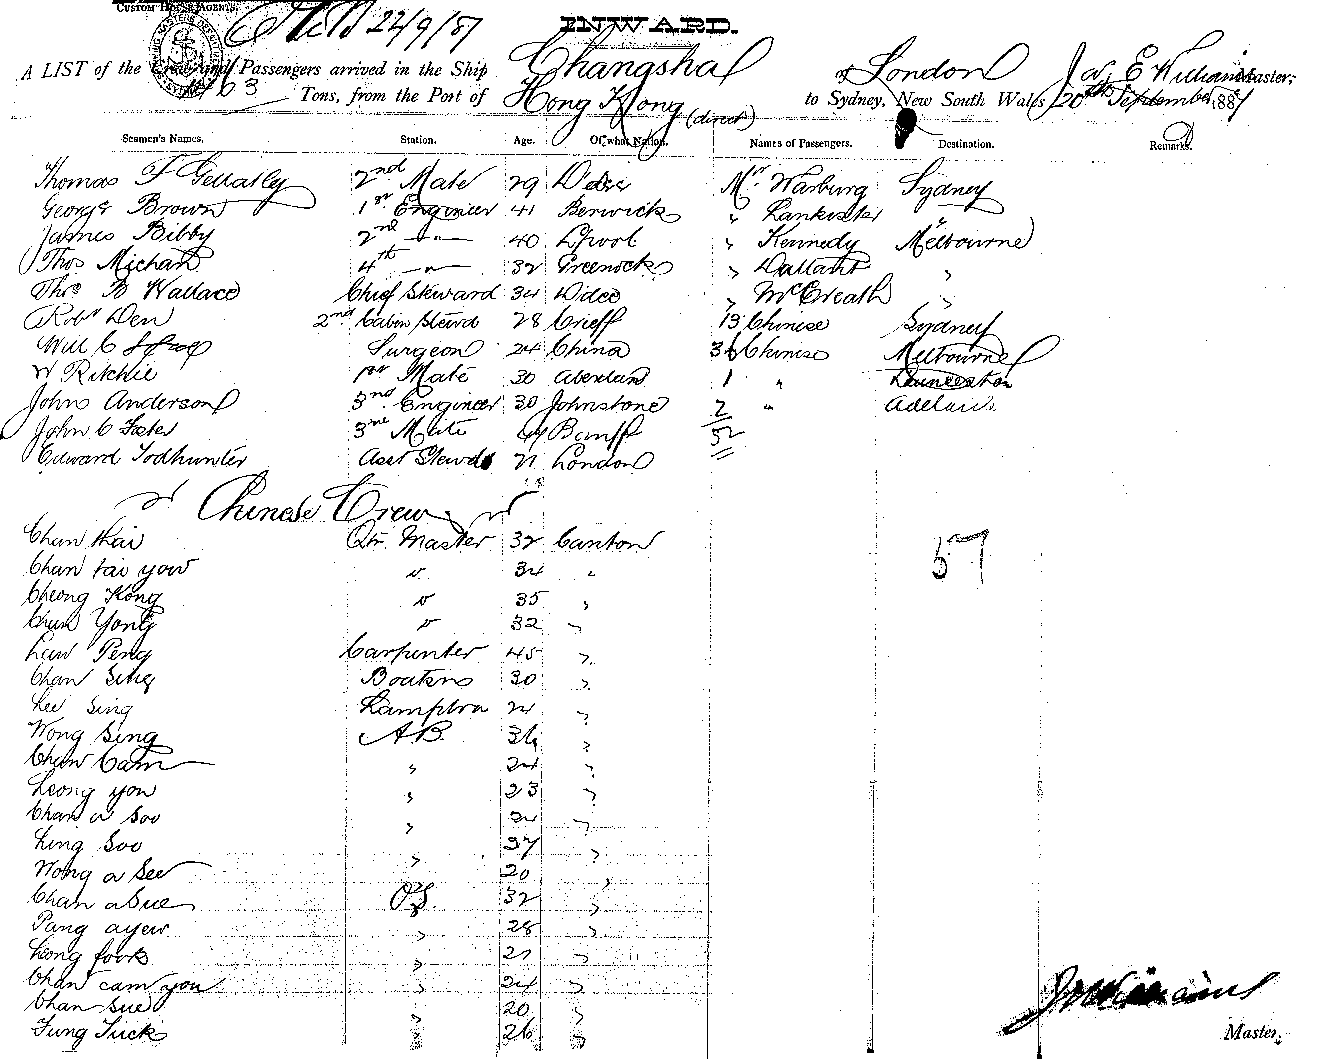 CUSTOM HOUSE AGENTS.
22/9/87
INWARD.
A LIST of the Crew and Passengers arrived in the Ship Changsha of London J. W. E Williams Master,
63 Tons, from the Port of Hong Kong (direct) to Sydney, New South Wales, 20th September 1887
Seamen's Names. Station. Age. Of what Nation. Names of Passengers. Destination. Remarks.
Thomas F Gellatly 2nd Mate 29 Dundee Mr Warburg Sydney
George Brown 1st Engineer 41 Berwick " Lankester "
James Bibby 2nd " 40 L'pool " Kennedy Melbourne
Thos Michan 4th " 32 Greenock " "
Thos B Wallace Chief Steward 34 " McCreath "
Robt Den 2nd Cabin Stewd 28 Crieff 13 Chinese Sydney
Will C Surgeon 24 China 36 Chinese Melbourne
W Ritchie 1st Mate 30 1 " Launceston
John Anderson 3rd Engineer 30 Johnstone 2 " Adelaide
John C 3rd Mate 24 Banff 52
Edward Todhunter Asst Stewd 21 London
Chinese Crew
Chan Thai Qtr Master 32 Canton
57
Chan tai yow " 34 "
Cheong Kong " 35 "
Chun Yong " 32 "
Law Peng Carpenter 45 "
Chan Sing Boatsn 30 "
Lee Sing Lamptrm 24 "
Wong Sing A.B. 36 "
Chan Cam " 24 "
Leong you " 23 "
Chan a Soo " 24 "
Ling Soo " 27 "
Wong a See " 20 "
Chan a Sue O.S. 32 "
Pang ayew " 28 "
Leong fook " 21 "
Chan cam you " 24 "
Chan Sue " 20 "
Fung Tuck " 26 "
J Williams
Master.